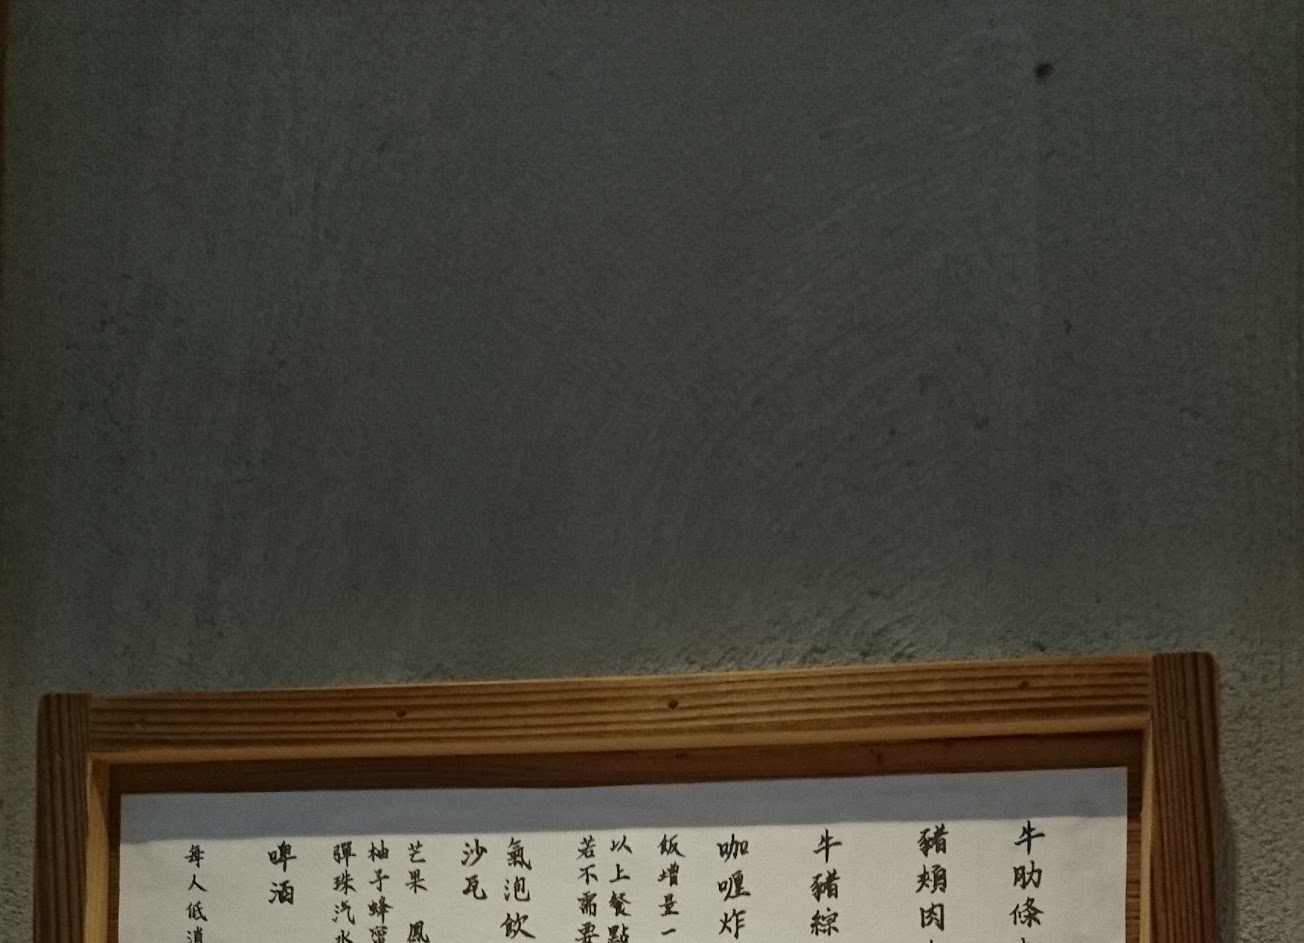 牛肋條
豬頰肉
牛豬綜
咖喱炸
飯增量一
以上餐點
若不需要
氣泡飲
沙瓦
芒果 鳳
柚子蜂蜜
彈珠汽水
啤酒
每人低消